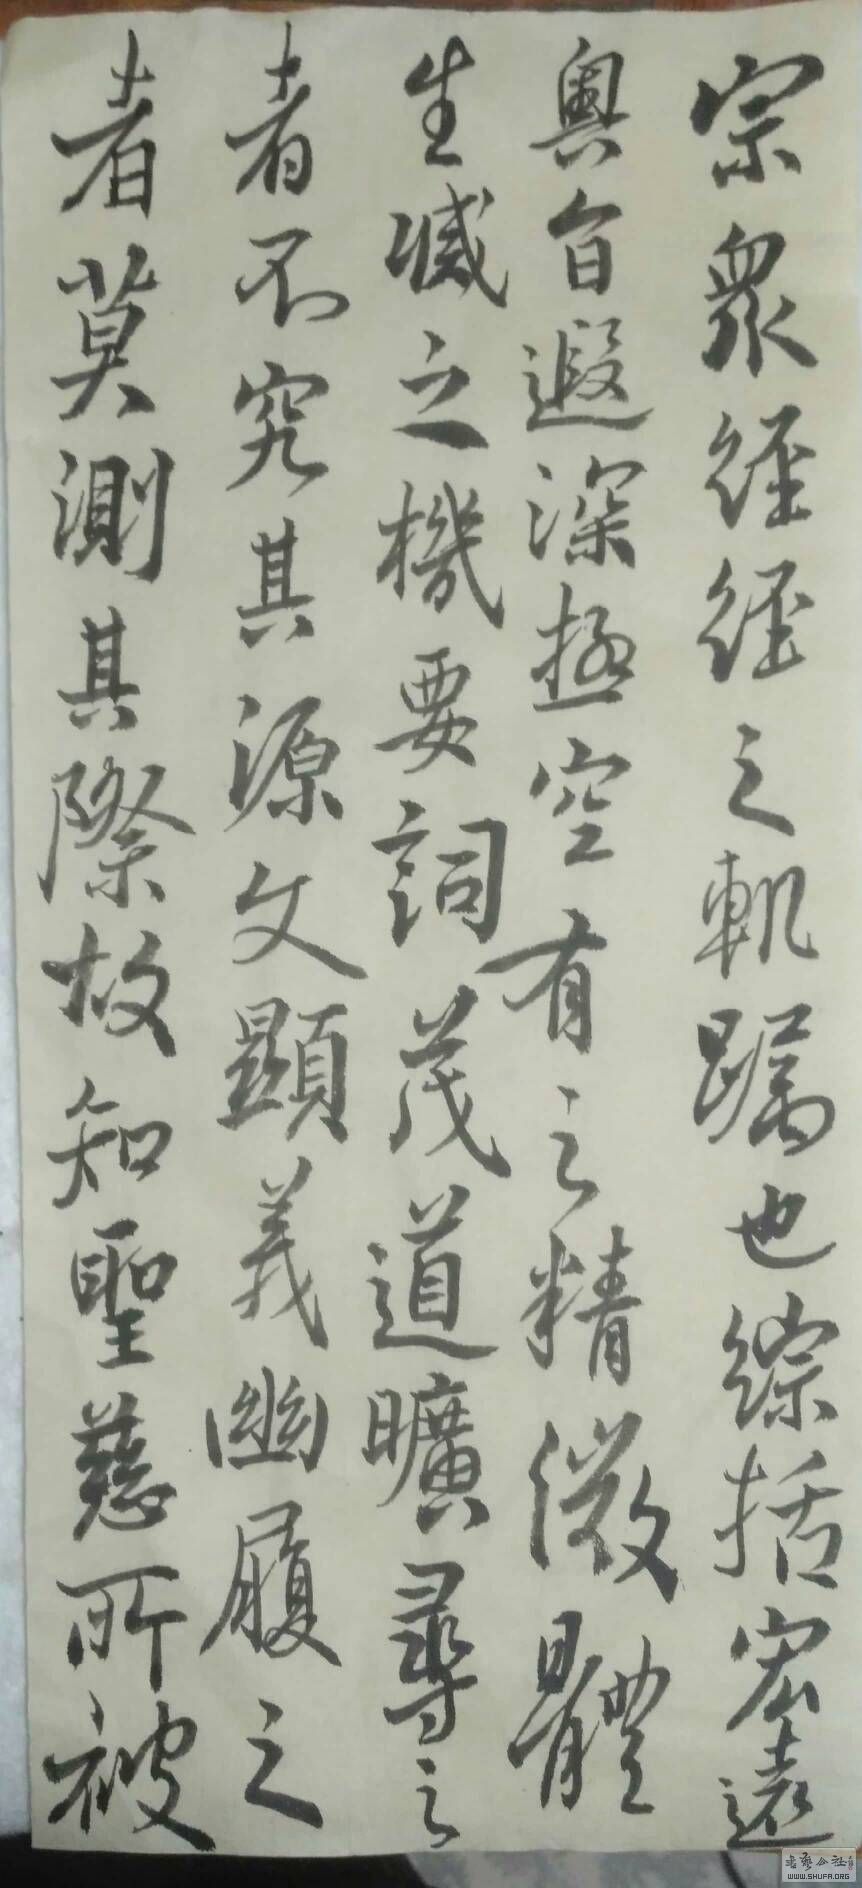 宗眾經經之軌躅也綜括宏遠
奧旨遐深極空有之精微體
生滅之機要詞茂道曠尋之
者不究其源文顯義幽履之
者莫測其際故知聖慈所被
书艺公社
WWW.SHUFA.ORG